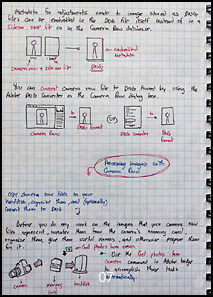 Metadata for adjustments made to images stored as DNG
files can be embedded in the DNG file itself instead of in a
sidecar XMP file or in the Camera Raw database.
embedded
metadata
camera raw + sidecar file
DNG
You can convert camera raw files to DNG format by using the
Adobe DNG Converter or the Camera Raw dialog box.
Camera Raw
DNG format
OR
DNG Converter
DNG format
Processing images with
Camera Raw
Copy camera raw files to your
hard disk, organize them and (optionally)
convert them to DNG
Before you do any work on the images that your camera raw
files represent, transfer them from the camera's memory card,
organize them, give them useful names, and otherwise prepare them
for it.
Get photos from camera
Use the Get photos from
Camera command in Adobe Bridge
to accomplish these tasks
automatically.
camera
memory
card